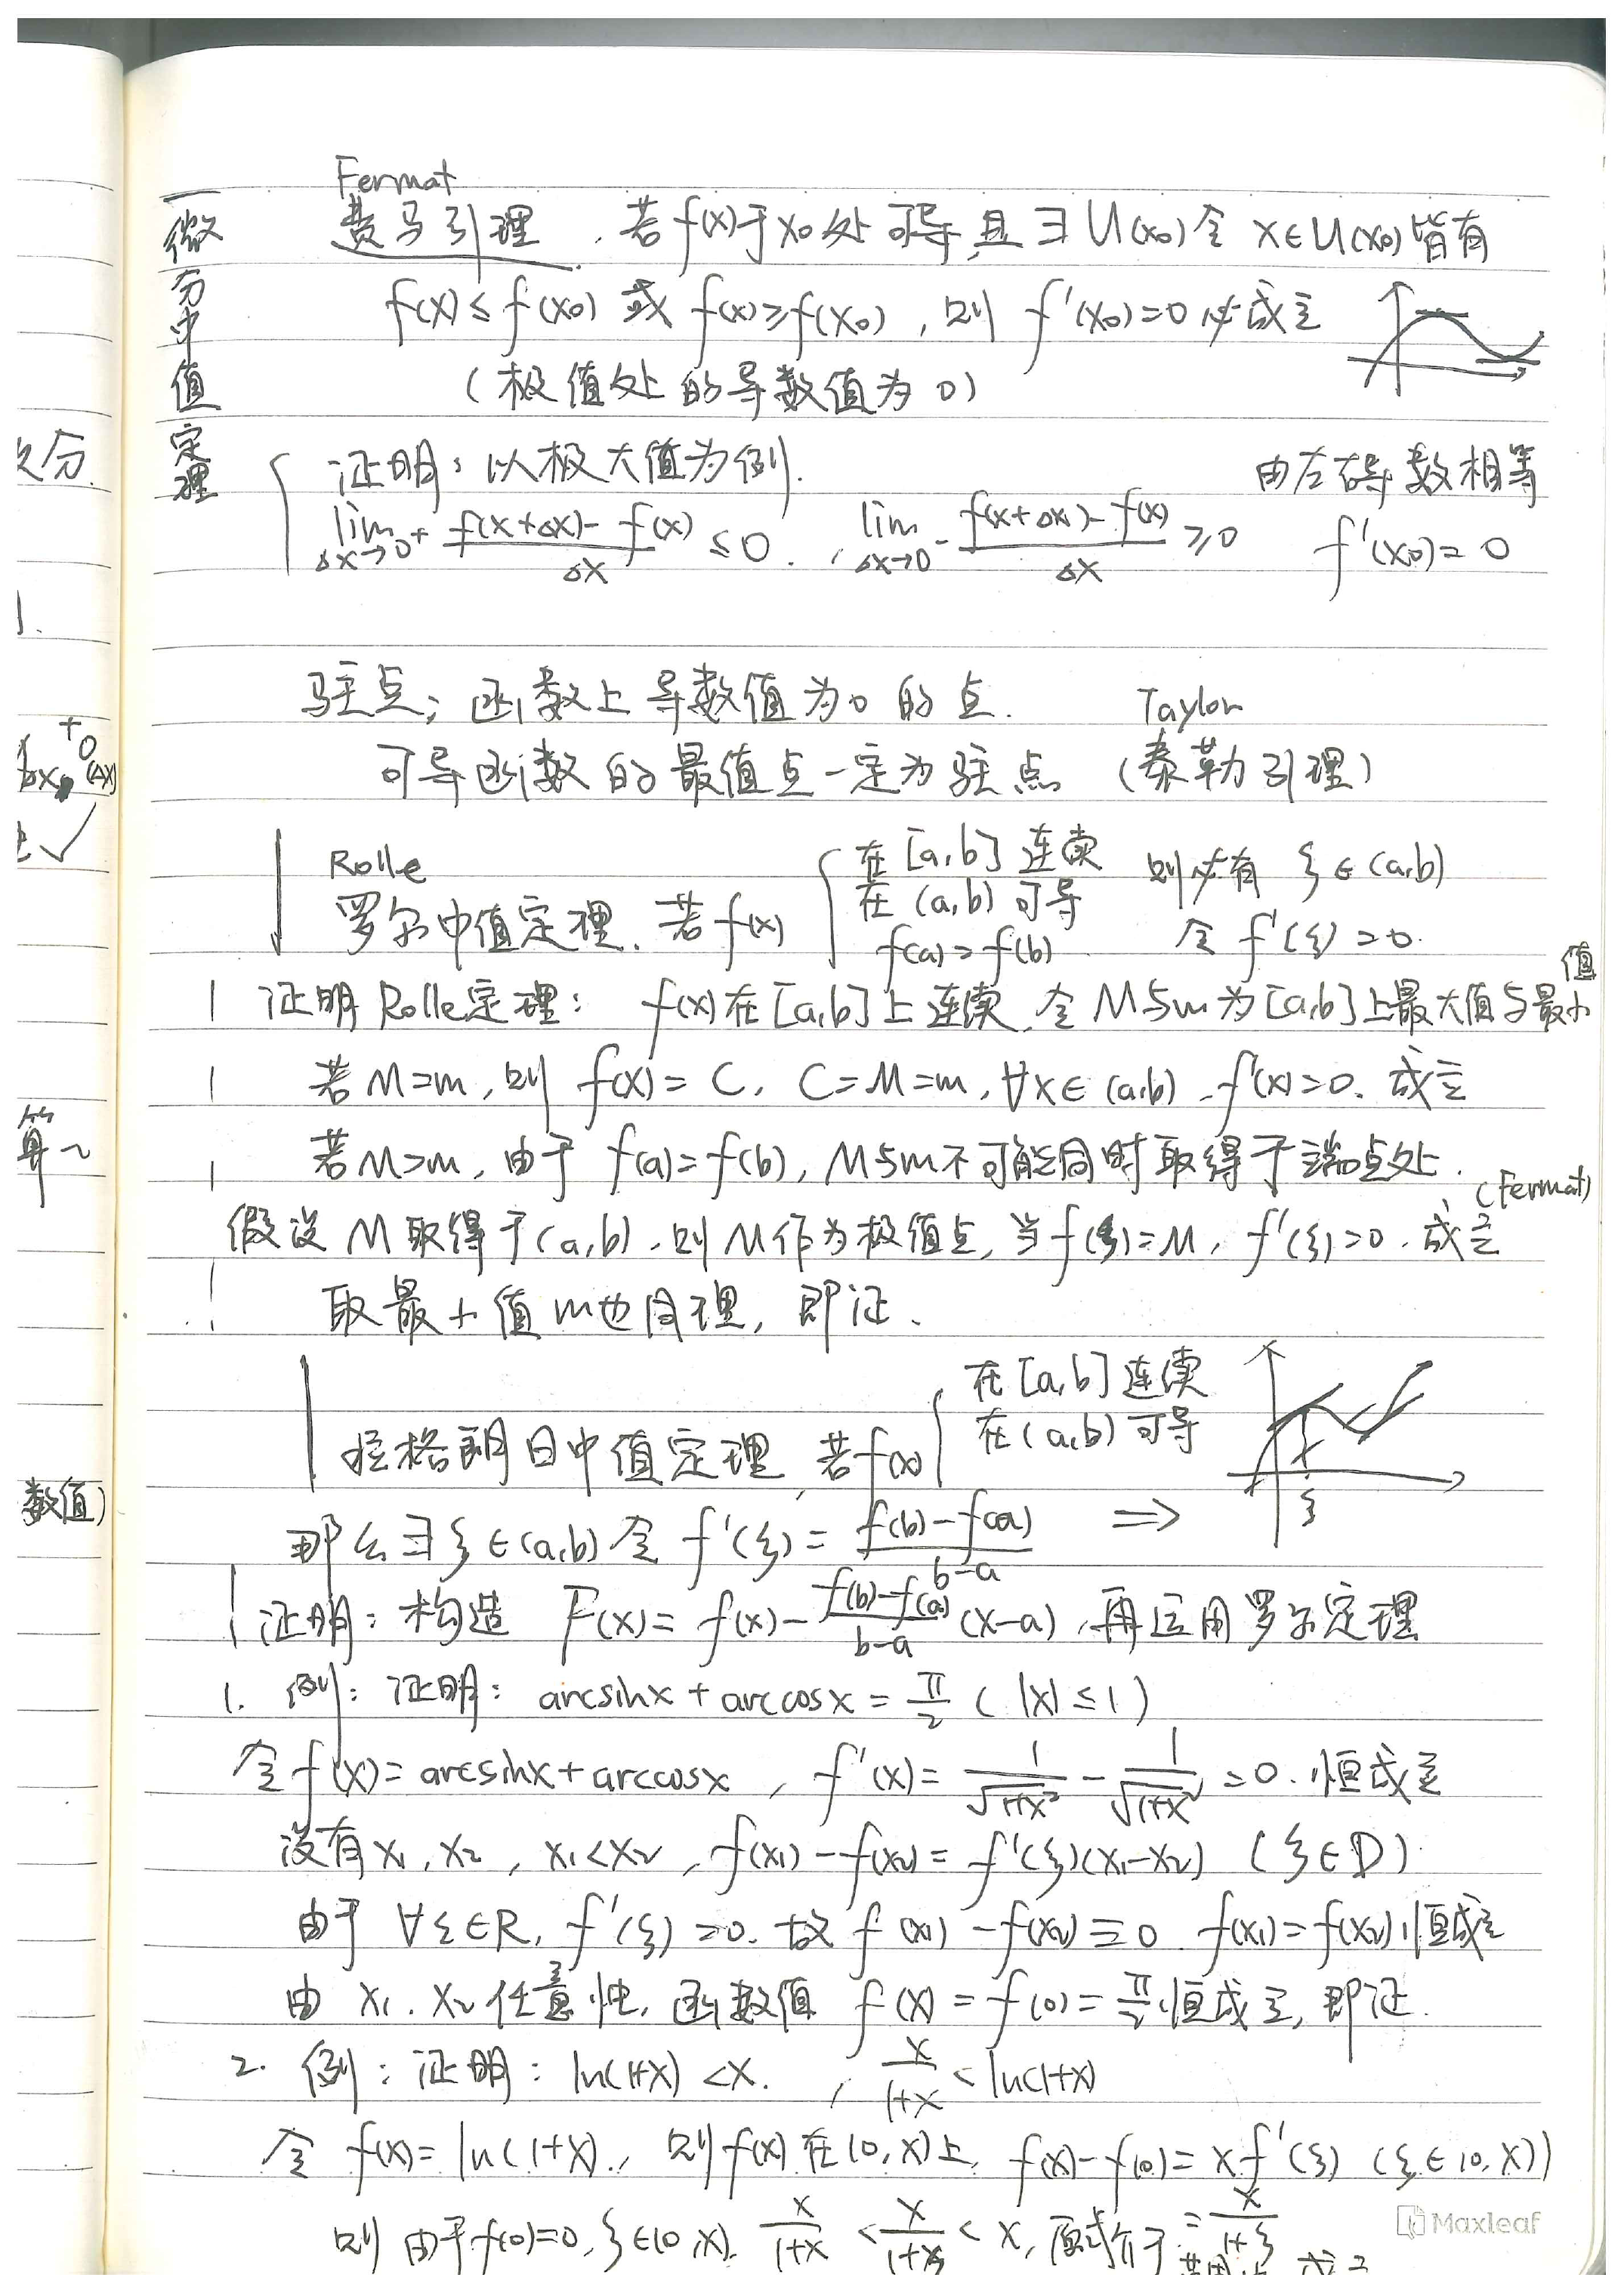 微分中值定理
Fermat
费马引理. 若f(x)于x0处可导,且∃U(x0)令 x∈U(x0)皆有
f(x)≤f(x0) 或 f(x)≥f(x0), 则 f'(x0)=0必成立
(极值处的导数值为0)
证明: 以极大值为例. 由左右导数相等
lim Δx→0+ (f(x+Δx)-f(x))/Δx ≤0. , lim Δx→0- (f(x+Δx)-f(x))/Δx ≥0 f'(x0)=0
驻点: 函数上导数值为0的点. Taylor
可导函数的最值点一定为驻点 (泰勒引理)
Rolle
罗尔中值定理. 若f(x) { 在[a,b]连续 在(a,b)可导 f(a)=f(b) 则必有 ξ∈(a,b) 令 f'(ξ)=0.
证明Rolle定理: f(x)在[a,b]上连续, 令M与m为[a,b]上最大值与最小值
若M=m, 则 f(x)=C, C=M=m, ∀x∈(a,b), f'(x)=0. 成立
若M>m, 由于 f(a)=f(b), M与m不可能同时取得于端点处.
假设M取得于(a,b), 则M作为极值点, 当f(ξ)=M, f'(ξ)=0. 成立 (Fermat)
取最小值m也同理, 即证.
拉格朗日中值定理, 若f(x) { 在[a,b]连续 在(a,b)可导
那么∃ξ∈(a,b)令 f'(ξ)= (f(b)-f(a))/(b-a) ⇒
ξ
证明: 构造 F(x)= f(x)- (f(b)-f(a))/(b-a) (x-a), 再运用罗尔定理
1. 例: 证明: arcsinx+arccosx= π/2 (|x|≤1)
令f(x)=arcsinx+arccosx, f'(x)= 1/√(1+x²) - 1/√(1+x²) =0. 恒成立
设有x1, x2, x1<x2, f(x1)-f(x2)= f'(ξ)(x1-x2) (ξ∈D)
由于 ∀ξ∈R, f'(ξ)=0. 故 f(x1)-f(x2)≡0 f(x1)=f(x2)恒成立
由 x1, x2任意性, 函数值 f(x)=f(0)= π/2 恒成立, 即证.
2. 例: 证明: ln(1+x)<x. , x/(1+x) < ln(1+x)
令 f(x)=ln(1+x)., 则f(x)在(0,x)上, f(x)-f(0)= x f'(ξ) (ξ∈(0,x))
则 由于f(0)=0, ξ∈(0,x), x/(1+x) < x/(1+ξ) < x, 原式 = x/(1+ξ)
次分.
1.
+0(Δx)
算
数值)
Maxleaf